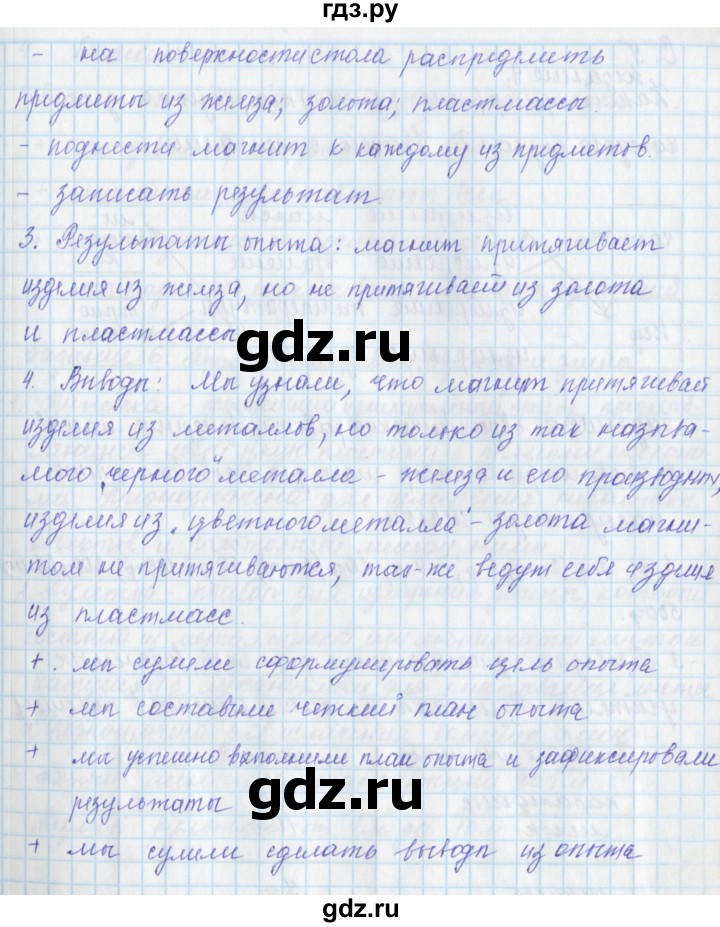 гдз.ру
- на поверхности стола распределить
предметы из железа; золота; пластмассы.
- поднести магнит к каждому из предметов.
- записать результат.
3. Результаты опыта: магнит притягивает
изделия из железа, но не притягивает из золота
и пластмассы
gdz.ru
4. Выводы: Мы узнали, что магнит притягивает
изделия из металлов, но только из так называ-
мого „черного" металла - железа и его производных,
изделия из „цветного металла" - золота магни-
том не притягиваются, так-же ведут себя изделия
из пластмасс.
+. мы сумели сформулировать цель опыта
+ мы составили четкий план опыта
+ мы успешно выполнили план опыта и зафиксировали
результаты
gdz.ru
+ мы сумели сделать выводы из опыта
gdz.ru